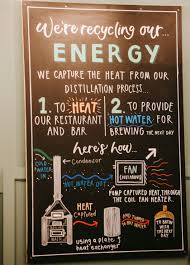 We're recycling our...
ENERGY
WE CAPTURE THE HEAT FROM OUR
DISTILLATION PROCESS...
1. TO HEAT
OUR RESTAURANT
AND BAR
2. TO PROVIDE
HOT WATER FOR
BREWING THE NEXT DAY
here's how...
COLD
WATER
IN
Condenser
HOT WATER OUT
FAN
PUMP CAPTURED HEAT THROUGH
THE COIL FAN HEATER.
HEAT
CAPTURED
using a plate
heat exchanger
AND PUMPED
HOT WATER
TO BREW
WITH THE
NEXT DAY